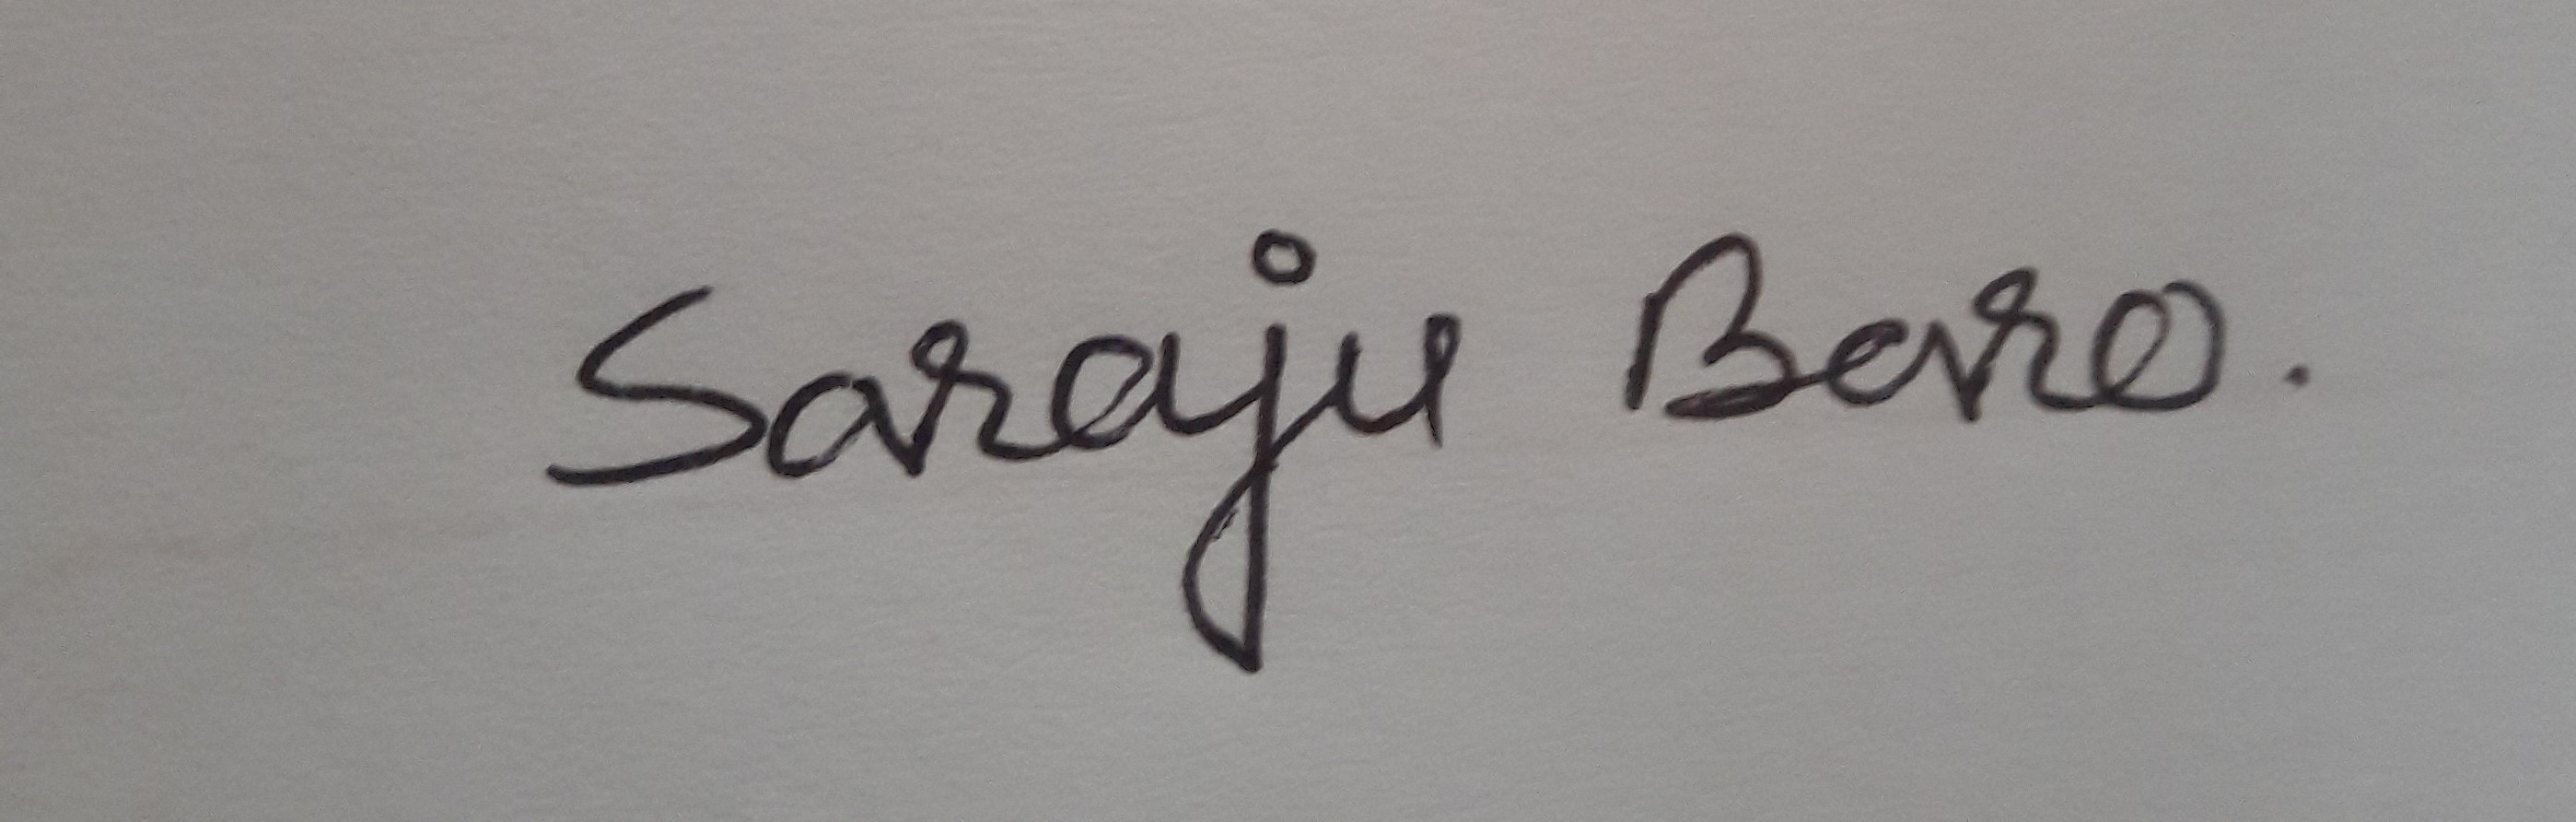 Saraju Bera.